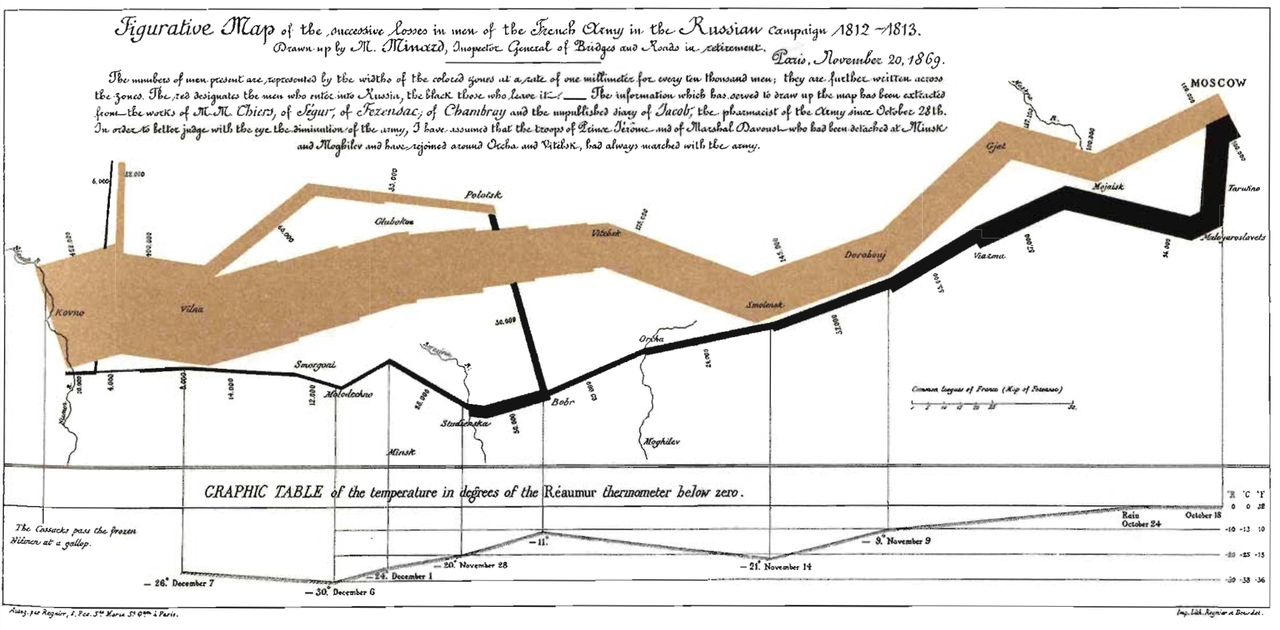 Figurative Map of the successive losses in men of the French Army in the Russian campaign 1812–1813.
Drawn up by M. Minard, Inspector General of Bridges and Roads in retirement.
Paris, November 20, 1869.
The numbers of men present are represented by the widths of the colored zones at a rate of one millimeter for every ten thousand men; they are further written across
the zones. The red designates the men who enter into Russia, the black those who leave it. — The information which has served to draw up the map has been extracted
from the works of M. M. Thiers, of Ségur, of Fezensac, of Chambray and the unpublished diary of Jacob, the pharmacist of the Army since October 28th.
In order to better judge with the eye the diminution of the army, I have assumed that the troops of Prince Jérôme and of Marshal Davoust who had been detached at Minsk
and Moghilev and have rejoined around Orcha and Vitebsk, had always marched with the army.
MOSCOW
100.000
100.000
Gjat
Mojaisk
Tarutino
Malo-jaroslavets
6.000
22.000
33.000
Polotsk
60.000
Glubokoe
400.000
Vitebsk
145.000
Dorobouj
Viazma
37.000
24.000
55.000
Kovno
Vilna
Smolensk
37.000
30.000
Orcha
24.000
20.000
Smorgoni
Molodechno
10.000
4.000
8.000
14.000
12.000
Studienska
50.000
Bobr
Minsk
Moghilev
Common leagues of France (Map of Fezensac)
GRAPHIC TABLE of the temperature in degrees of the Réaumur thermometer below zero.
°R °C °F
0 0 32
-10 -13 10
-20 -25 -15
-30 -38 -36
The Cossacks pass the frozen
Niemen at a gallop.
Rain
October 24
October 18
— 9.° November 9
— 21.° November 14
— 11.°
— 20.° November 28
— 24. December 1
— 30.° December 6
— 26.° December 7
Imp. Lith. Regnier et Dourdet.